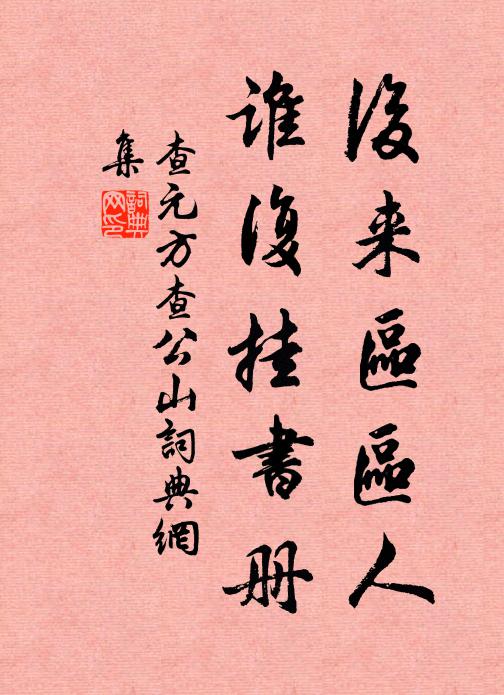 後来區區人
誰復挂書册
查元方查公山詞典網
集
詞典网印